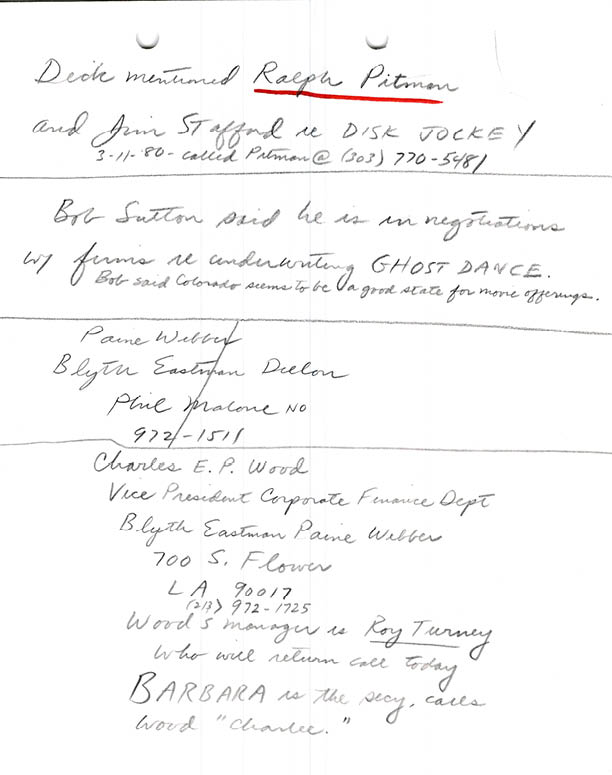 Dick mentioned Ralph Pitman
and Jim Stafford re DISK JOCKEY
3-11-'80 - called Pitman @ (303) 770-5481
Bob Sutton said he is in negotiations
w/ firms re underwriting GHOST DANCE.
Bob said Colorado seems to be a good state for movie offerings.
Paine Webber
Blyth Eastman Dillon
Phil Malone NO
972-1511
Charles E. P. Wood
Vice President Corporate Finance Dept
Blyth Eastman Paine Webber
700 S. Flower
LA 90017
(213) 972-1725
Wood's manager is Roy Turney
who will return call today
BARBARA is the secy, calls
Wood "Charlee."